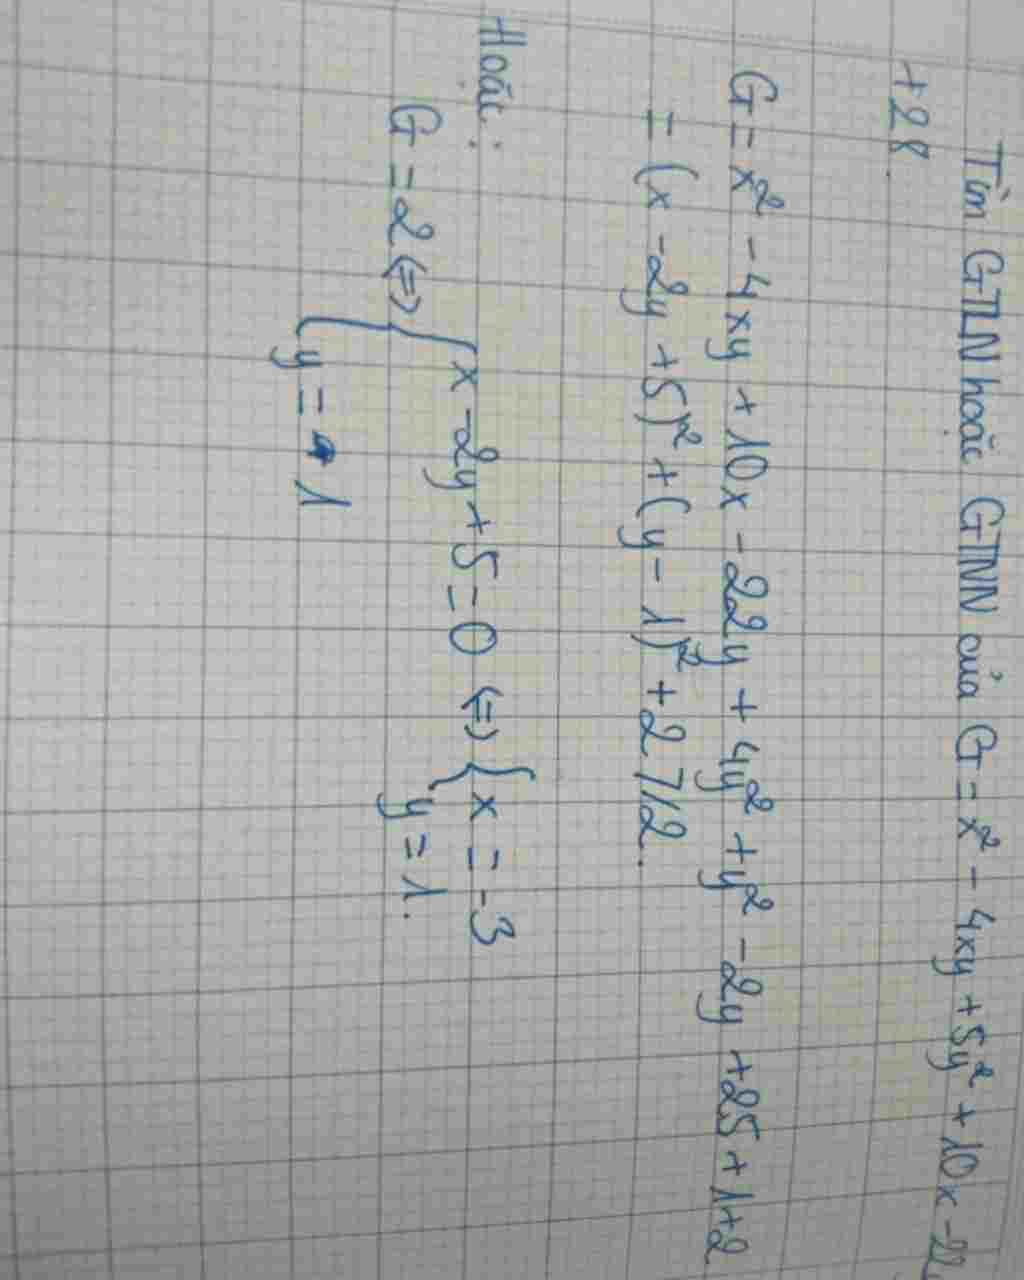 Tìm GTLN hoặc GTNN của G = x² - 4xy + 5y² + 10x - 22y
+ 28.
G = x² - 4xy + 10x - 22y + 4y² + y² - 2y + 25 + 1 + 2
= (x - 2y + 5)² + (y - 1)² + 2 7/2.
Hoặc:
G = 2 <=> { x - 2y + 5 = 0 <=> { x = -3
y = 1 y = 1.